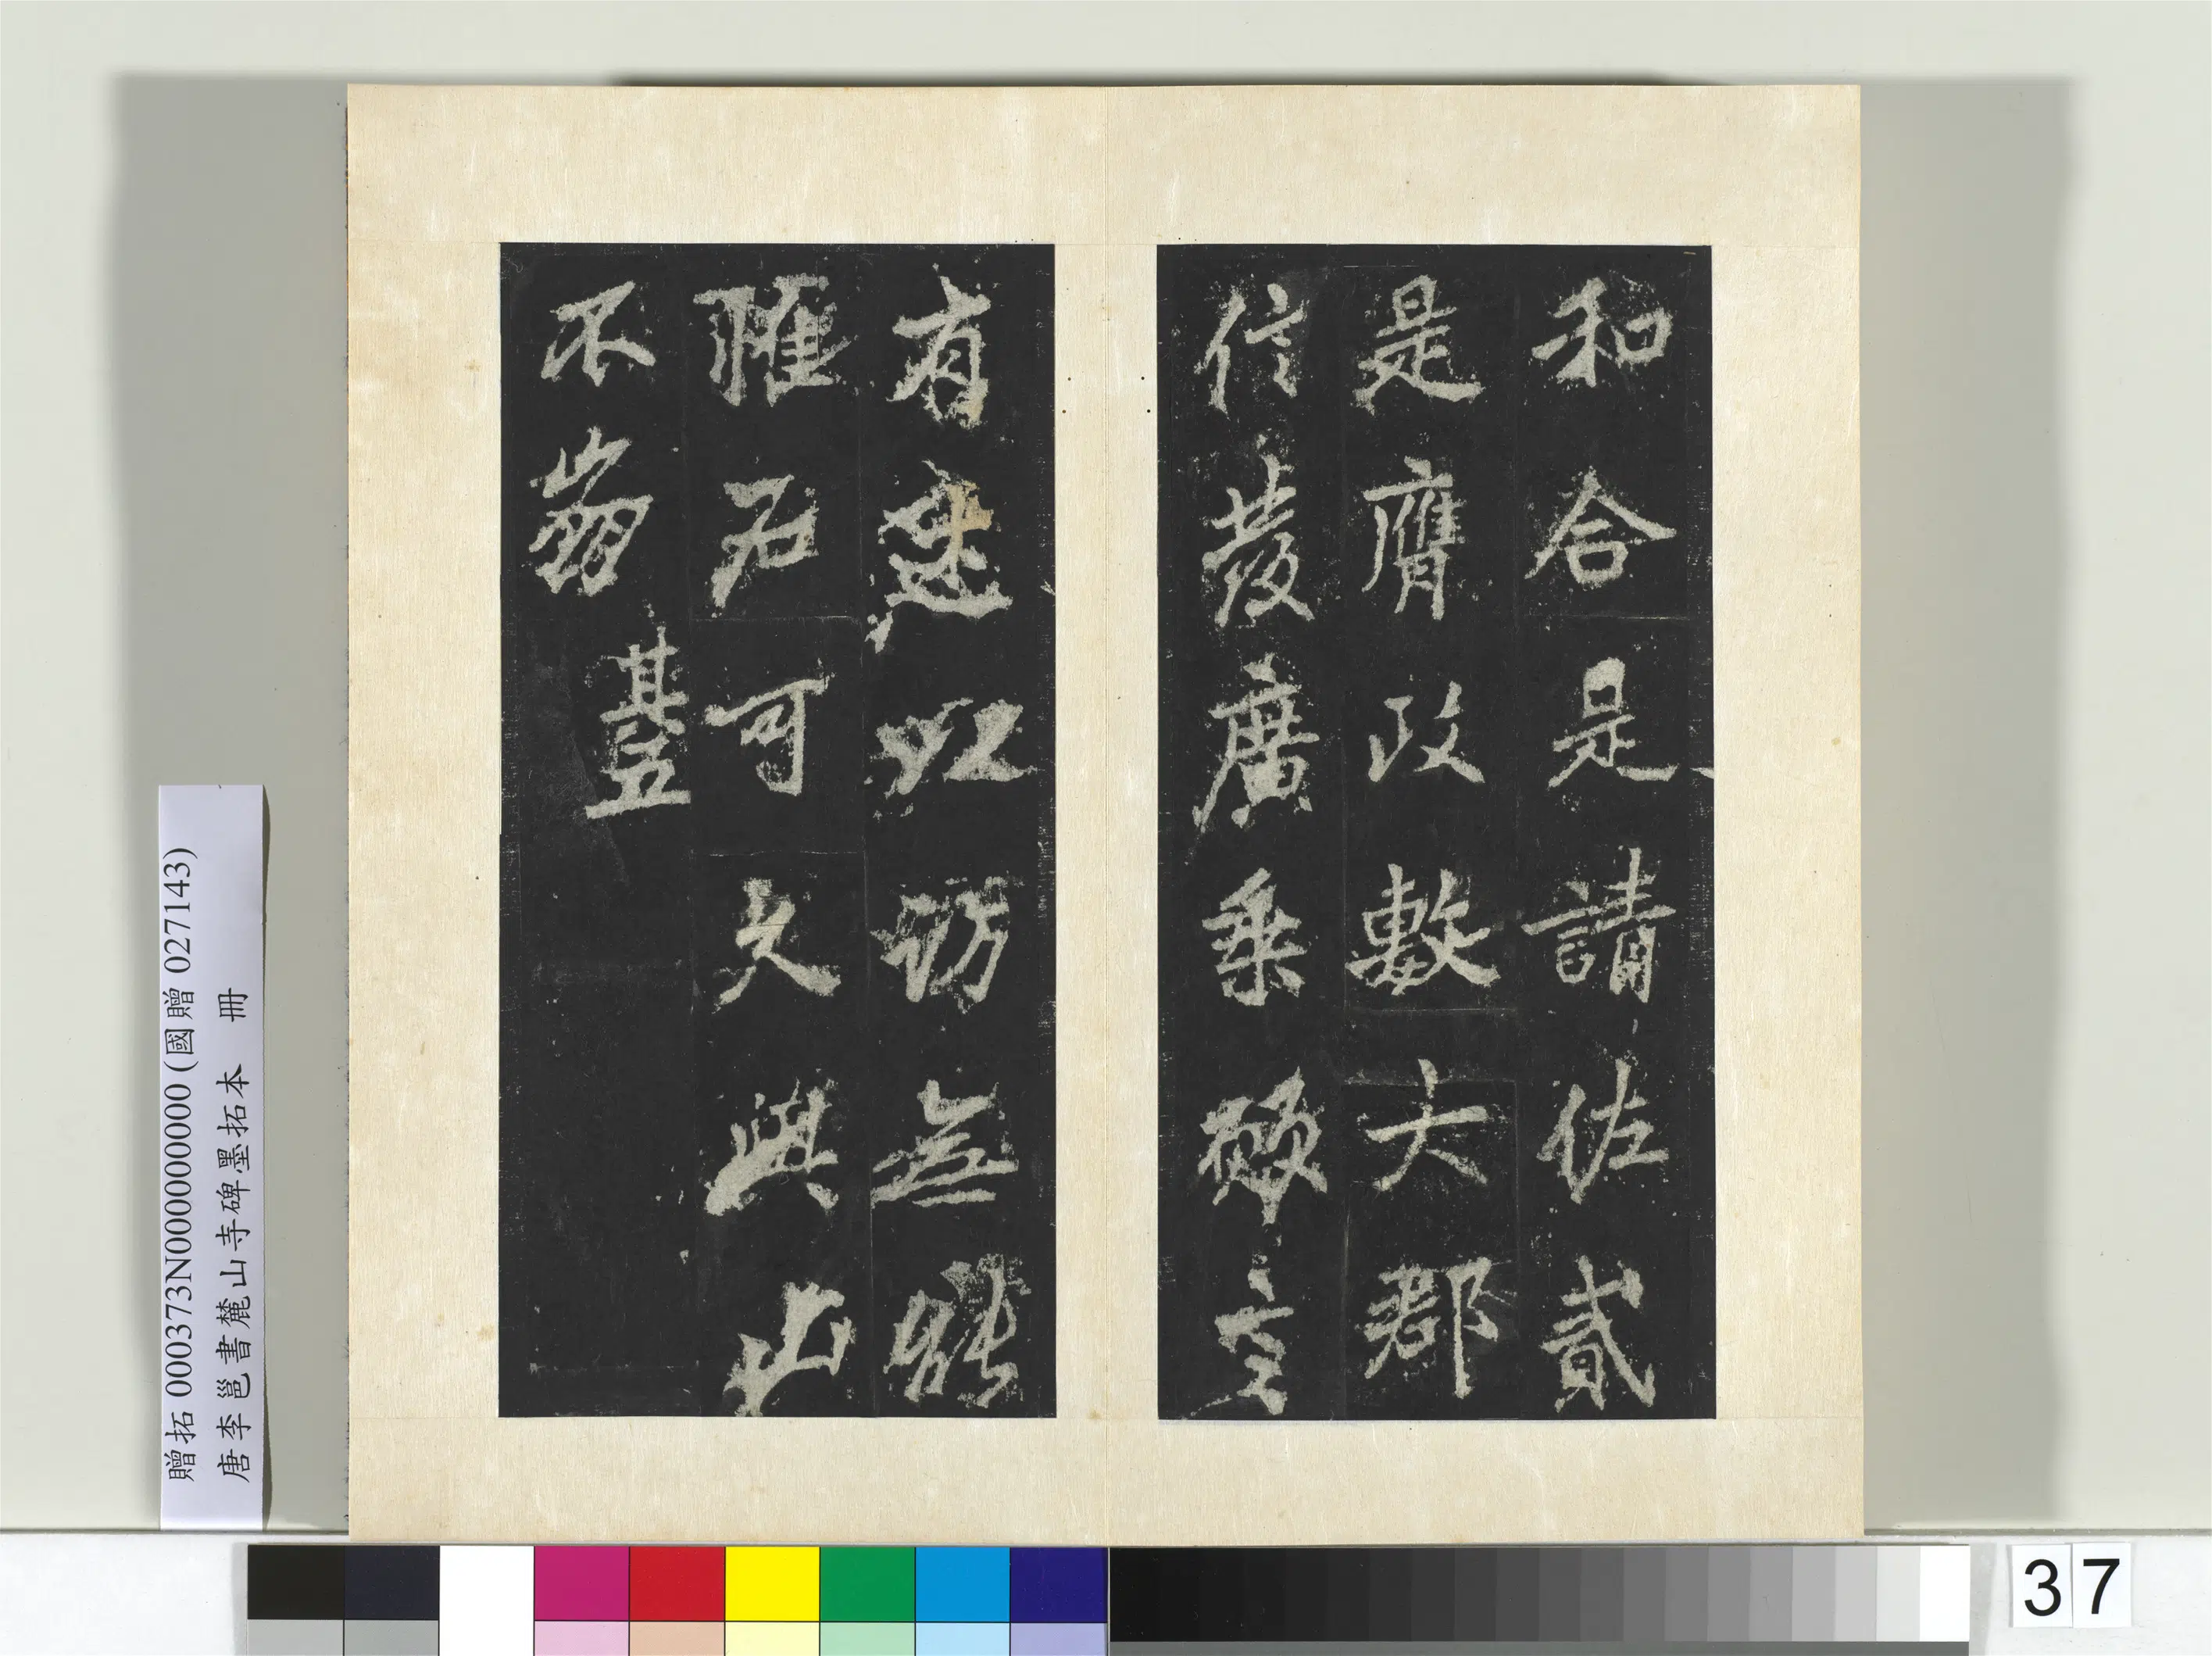 和合是請佐貳
是膺政敷大郡
信發廣乘立
有述以訪無能
惟石可久與山
不崩 其五
贈拓 000373N000000000 (國贈 027143)
唐李邕書麓山寺碑墨拓本 冊
37